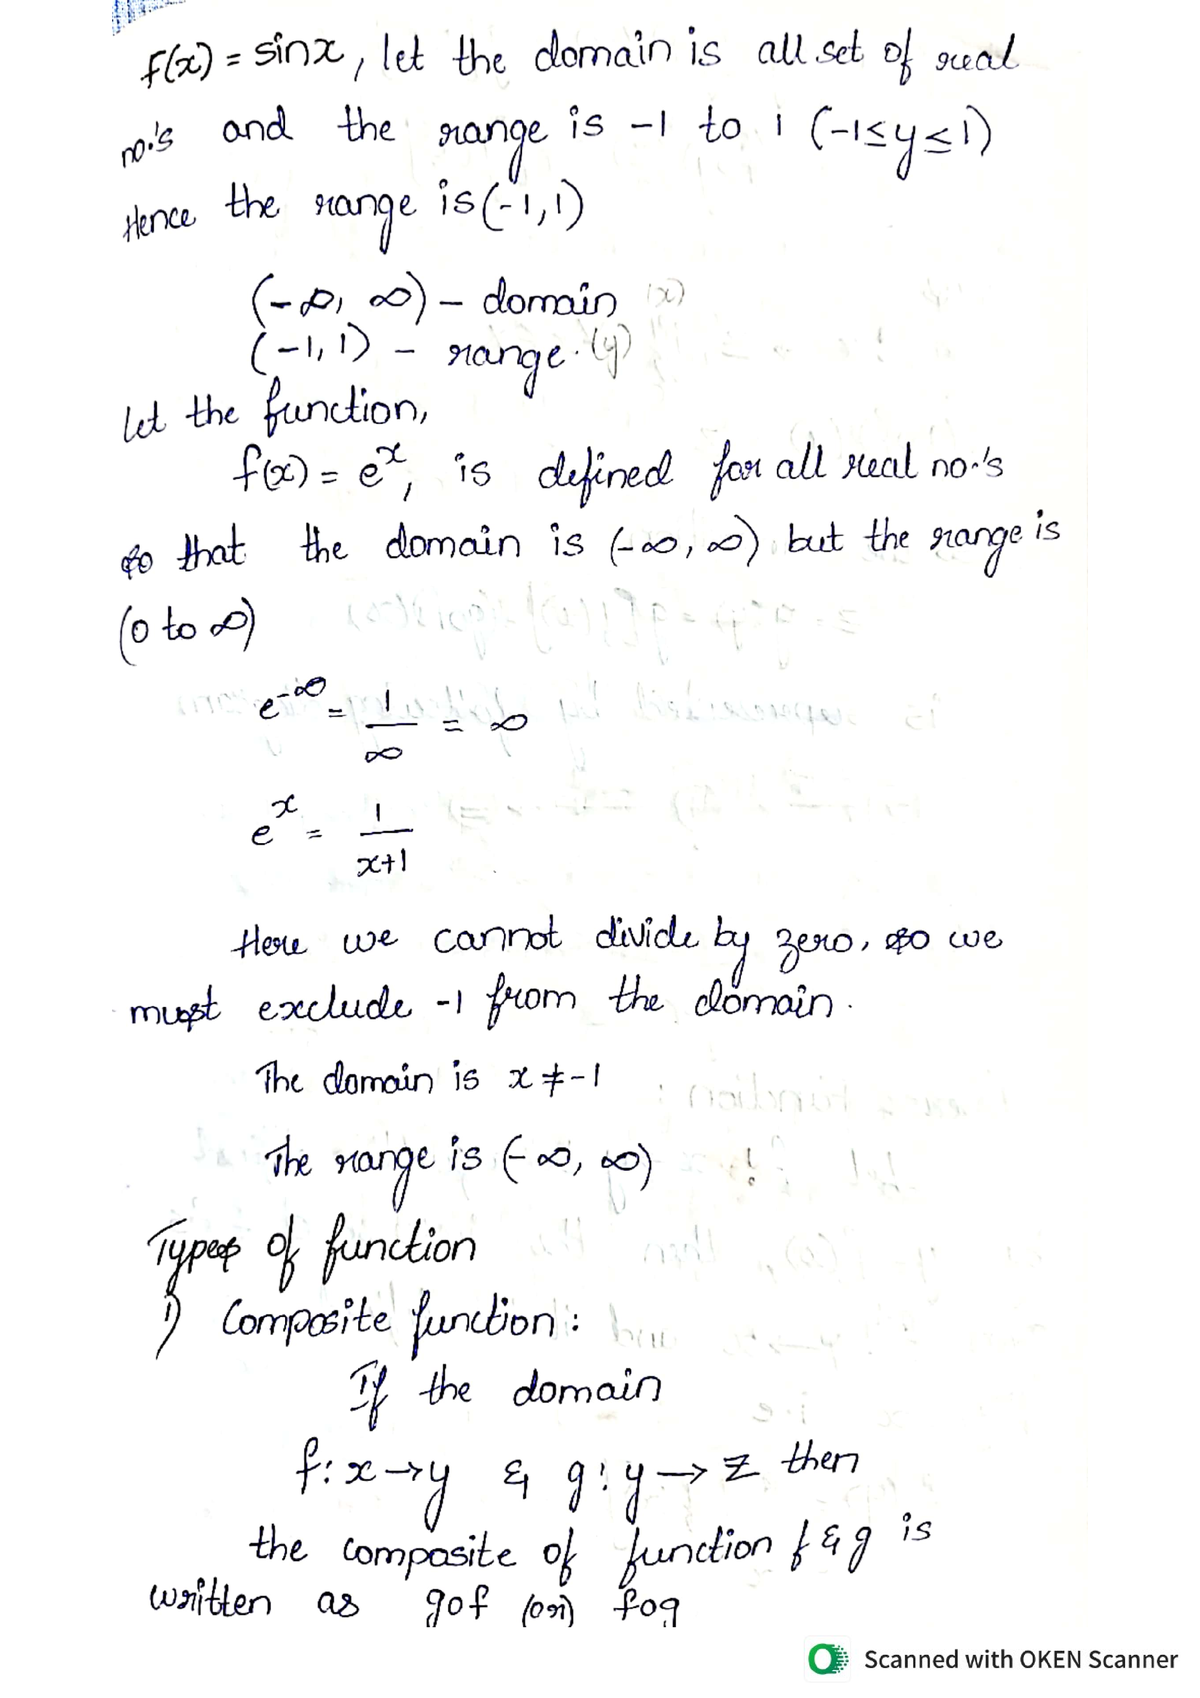 f(x) = sinx, let the domain is all set of real
no.'s and the range is -1 to 1 (-1≤y≤1)
Hence the range is (-1,1)
(-∞, ∞) - domain (x)
(-1, 1) - range (y)
let the function,
f(x) = e^x, is defined for all real no.'s
so that the domain is (-∞, ∞) but the range is
(0 to ∞)
e^-∞ = 1/∞ = ∞
e^x = 1/x+1
Here we cannot divide by zero, so we
must exclude -1 from the domain.
The domain is x ≠ -1
The range is (-∞, ∞)
Types of function
1) Composite function:
If the domain
f: x→y & g: y→z then
the composite of function f & g is
written as gof (or) fog
Scanned with OKEN Scanner